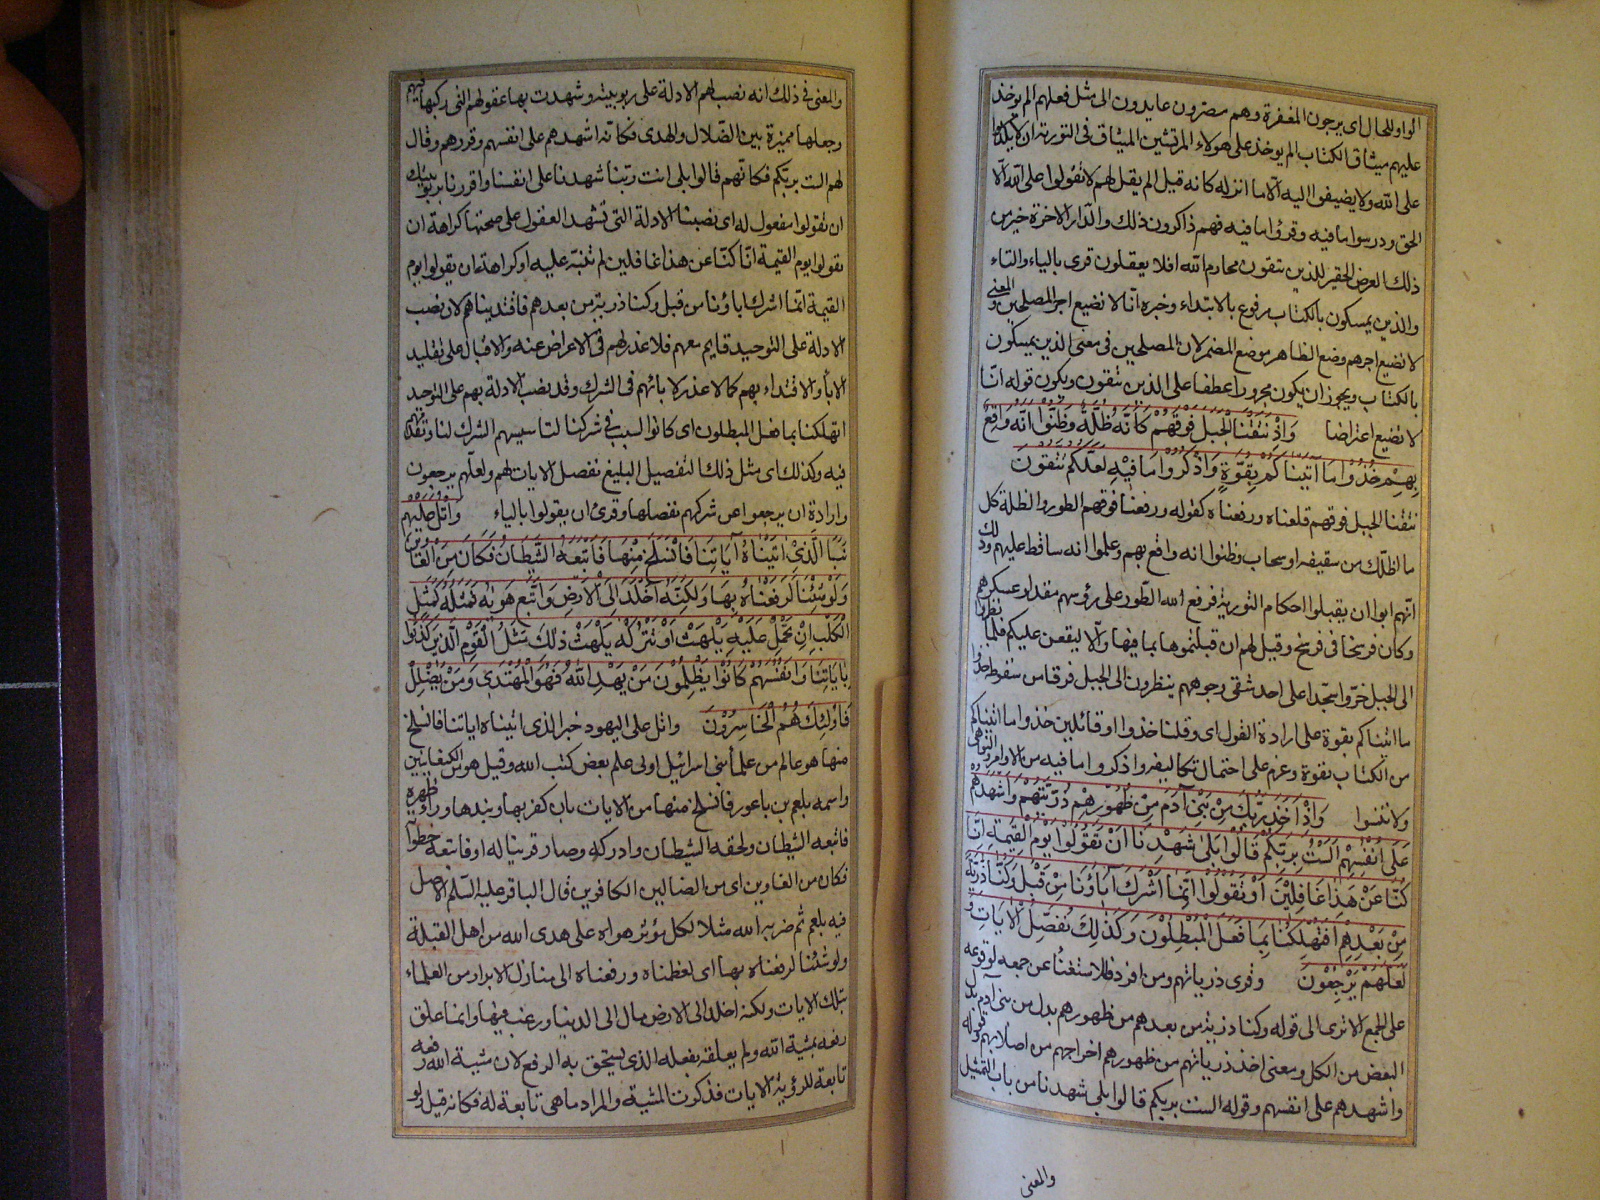 الواو للحال اى يرجون المغفرة وهم مصرون عايدون الى مثل فعلهم الم يؤخذ
عليهم ميثاق الكتاب الم يوخذ على هولاء المرتشين الميثاق فى التورية ان لا يكذبوا
على الله ولا يضيفوا اليه الا ما انزله كانه قيل الم يقل لهم لا تقولوا على الله الا
الحق ودرسوا ما فيه وقرؤا ما فيه فهم ذاكرون ذلك والدار الاخرة خير من
ذلك العرض الحقير للذين يتقون محارم الله افلا يعقلون قرى بالياء والتاء
والذين يمسكون بالكتاب مرفوع بالابتداء وخبره انا لا نضيع اجر المصلحين والمعنى
لا نضيع اجرهم وضع الظاهر موضع المضمر لان المصلحين فى معنى الذين يمسكون
بالكتاب ويجوز ان يكون مجرورا عطفا على الذين يتقون ويكون قوله انا
لا نضيع اعتراضا وَاِذْ نَتَقْنَا الْجَبَلَ فَوْقَهُمْ كَاَنَّهُ ظُلَّةٌ وَظَنُّوْا اَنَّهُ وَاقِعٌ
بِهِمْ خُذُوْا مَا آتَيْنَا كُمْ بِقُوَّةٍ وَاذْكُرُوْا مَا فِيْهِ لَعَلَّكُمْ تَتَّقُوْنَ
نتقنا الجبل فوقهم قلعناه ورفعناه كقوله ورفعنا فوقهم الطور والظلة كل
ما اظلك من سقيفه او سحاب وظنوا انه واقع بهم وعلموا انه ساقط عليهم وذلك
انهم ابوا ان يقبلوا احكام التورية فرفع الله الطور على رؤسهم مقدار عسكرهم
وكان فرسخا فى فرسخ وقيل لهم ان قبلتموها بما فيها والا ليقعن عليكم فلما نظروا
الى الجبل خروا سجدا على احد شقى وجوههم ينظرون الى الجبل فرقا من سقوطه خذوا
ما اتيناكم بقوة على ارادة القول اى وقلنا خذوا او قائلين خذوا ما اتيناكم
من الكتاب بقوة وعزم على احتمال تكاليفه واذكروا ما فيه من الاوامر والنواهى
ولا تنسوا وَاِذْ اَخَذَ رَبُّكَ مِنْ بَنِىْ آدَمَ مِنْ ظُهُوْرِهِمْ ذُرِّيَّتَهُمْ وَاَشْهَدَهُمْ
عَلَى اَنْفُسِهِمْ اَلَسْتُ بِرَبِّكُمْ قَالُوْا بَلَى شَهِدْنَا اَنْ تَقُوْلُوْا يَوْمَ الْقِيمَةِ اِنَّا
كُنَّا عَنْ هَذَا غَافِلِيْنَ اَوْ تَقُوْلُوْا اِنَّمَا اَشْرَكَ آبَاؤُنَا مِنْ قَبْلُ وَكُنَّا ذُرِّيَّةً
مِنْ بَعْدِهِمْ اَفَتُهْلِكُنَا بِمَا فَعَلَ الْمُبْطِلُوْنَ وَكَذَلِكَ نُفَصِّلُ الْآيَاتِ وَ
لَعَلَّهُمْ يَرْجِعُوْنَ وقرى ذرياتهم ومن افرد فللاستغناء عن جمعه لوقوعه
على الجمع الا ترى الى قوله وكنا ذرية من بعدهم من ظهورهم بدل من بنى آدم بدل
البعض من الكل ومعنى اخذ ذرياتهم من ظهورهم اخراجهم من اصلابهم وقوله
واشهدهم على انفسهم وقوله الست بربكم قالوا بلى شهدنا من باب التمثيل
والمعنى
والمعنى فى ذلك انه نصب لهم الادلة على ربوبيته وشهدت بها عقولهم التى ركبها فيهم
وجعلها مميزة بين الضلال والهدى فكانه اشهدهم على انفسهم وقررهم وقال
لهم الست بربكم فكانهم قالوا بلى انت ربنا شهدنا على انفسنا واقررنا بربوبيتك
ان تقولوا مفعول له اى نصبنا الادلة التى تشهد العقول على صحتها كراهة ان
تقولوا يوم القيمة انا كنا عن هذا غافلين لم ننبه عليه او كراهة ان يقولوا يوم
القيمة انما اشرك اباؤنا من قبل وكنا ذرية من بعدهم فاقتديناهم لان نصب
الادلة على التوحيد قايم معهم فلا عذر لهم فى الاعراض عنه والاقبال على تقليد
الابا والاقتداء بهم كما لا عذر لابائهم فى الشرك وقد نصب الادلة بهم على التوحيد
اتهلكنا بما فعل المبطلون اى كانوا السبب فى شركنا لتاسيسهم الشرك لنا وتقدمهم
فيه وكذلك اى مثل ذلك التفصيل البليغ نفصل الايات لهم ولعلهم يرجعون
وارادة ان يرجعوا عن شركهم نفصلها وقرئ ان يقولوا بالياء وَاتْلُ عَلَيْهِمْ
نَبَأَ الَّذِىْ اٰتَيْنَاهُ آيَاتِنَا فَانْسَلَخَ مِنْهَا فَاَتْبَعَهُ الشَّيْطَانُ فَكَانَ مِنَ الْغَاوِيْنَ
وَلَوْ شِئْنَا لَرَفَعْنَاهُ بِهَا وَلَكِنَّهُ اَخْلَدَ اِلَى الْاَرْضِ وَاتَّبَعَ هَوَيهُ فَمَثَلُهُ كَمَثَلِ
الْكَلْبِ اِنْ تَحْمِلْ عَلَيْهِ يَلْهَثْ اَوْ تَتْرُكْهُ يَلْهَثْ ذَلِكَ مَثَلُ الْقَوْمِ الَّذِيْنَ كَذَّبُوْا
بِاٰيَاتِنَا وَاَنْفُسَهُمْ كَانُوْا يَظْلِمُوْنَ مَنْ يَهْدِ اللّٰهُ فَهُوَ الْمُهْتَدِى وَمَنْ يُضْلِلْ
فَاُولَئِكَ هُمُ الْخَاسِرُوْنَ واتل على اليهود خبر الذى اتيناه اياتنا فانسلخ
منها هو عالم من علماء بنى اسرائيل اوتى علم بعض كتب الله وقيل هو من الكنعانيين
واسمه بلعم بن باعور فانسلخ منها من الايات بان كفر بها ونبذها وراء ظهره
فاتبعه الشيطان ولحقه الشيطان وادركه وصار قرينا له او فاتبعه خطواته
فكان من الغاوين اى من الضالين الكافرين قال الباقر عليه السلم الاصل
فيه بلعم ثم ضربه الله مثلا لكل مؤثر هواه على هدى الله من اهل القبلة
ولو شئنا لرفعناه بها اى لعظمناه ورفعناه الى منازل الابرار من العلماء
بتلك الايات ولكنه اخلد الى الارض مال الى الدنيا ورغب فيها وانما علق
رفعه بمشية الله ولم يعلقه بفعله الذى يستحق به الرفع لان مشية الله رفعه
تابعة للزومه الايات فذكرت المشية والمراد ما هى تابعة له فكانه قيل ولو